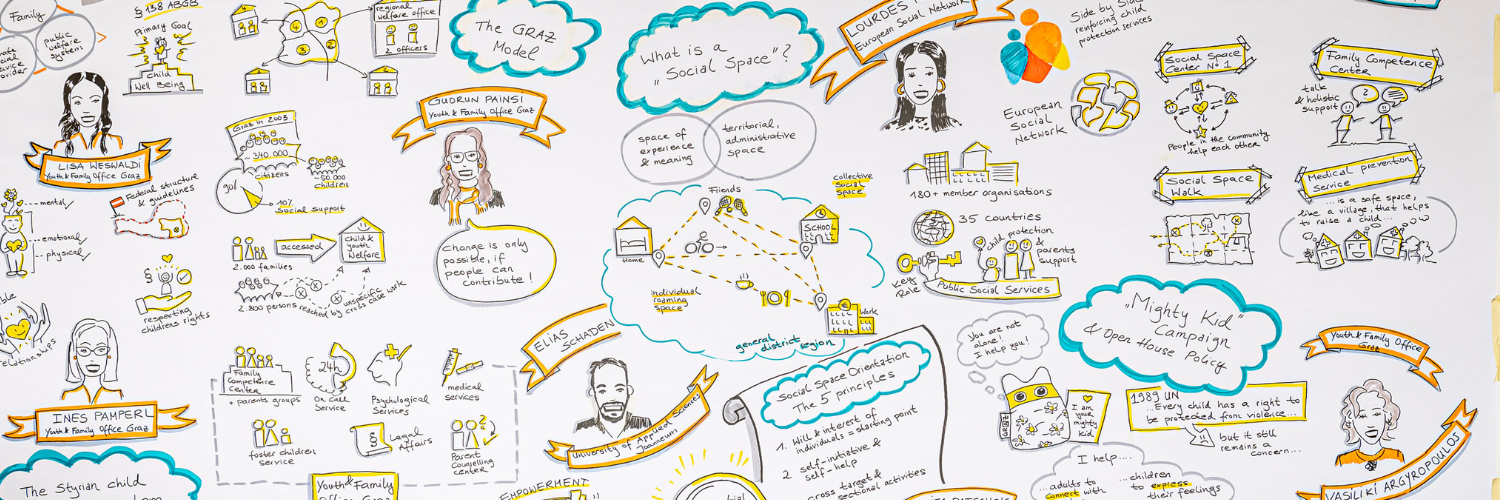 Family
public
welfare
system
§ 138 ABGB
Primary Goal
Child
Well Being
LISA WESWALDI
Youth & Family Office Graz
mental
emotional
physical
Federal structure
& guidelines
§
respecting
childrens rights
INES PAMPERL
Youth & Family Office Graz
The Styrian child
1
2
3
4
regional
welfare office
2 officers
Graz in 2003
~ 340.000
citizens
~50.000
children
90%
10%
Social support
2.000 families
accessed
Child &
youth
Welfare
2.800 persons reached by unspecific
cross case work
Family
Competence
Center
+ parents groups
24h
On call
Service
Psychological
Services
medical
services
foster children
service
§
Legal
Affairs
Parent
Counselling
Center
Youth & Family
The GRAZ
Model
GUDRUN PAINSI
Youth & Family Office Graz
Change is only
possible, if
people can
contribute!
What is a
"Social Space"?
space of
experience
& meaning
territorial,
administrative
space
collective
Social
Space
Friends
Home
SCHOOL
individual
roaming
space
Work
general district region
ELIAS SCHADEN
University of Applied Sciences
Joanneum
EMPOWERMENT
Social Space Orientation
The 5 principles
1. Will & interest of
individuals = starting point
2. self-initiative &
self-help
cross target &
sectional activities
LOURDES
European Social Network
Side by Side
reinforcing child
protection services
European
Social
Network
180+ member organisations
35 countries
child protection
&
parents
support
Key
Role
Public Social Services
You are not
alone!
I help you!
I am
your
mighty
kid
"Mighty Kid"
Campaign
& Open House Policy
1989 UN
...Every child has a right to
be protected from violence...
but it still
remains a
concern...
I help....
...adults to
connect with
...children
to express
their feelings
Social Space
Center N° 1
People in the community
help each other
Social Space
Walk
Family Competence
Center
talk
& holistic
support
?
Medical prevention
Service
... is a safe space,
like a village, that helps
to raise a child...
Youth & Family Office
Graz
VASILIKI ARGYROPOULOS